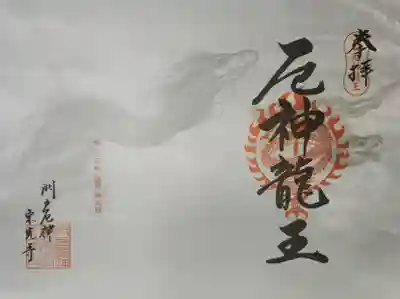 奉拝
厄神龍王
門戸厄神
東光寺